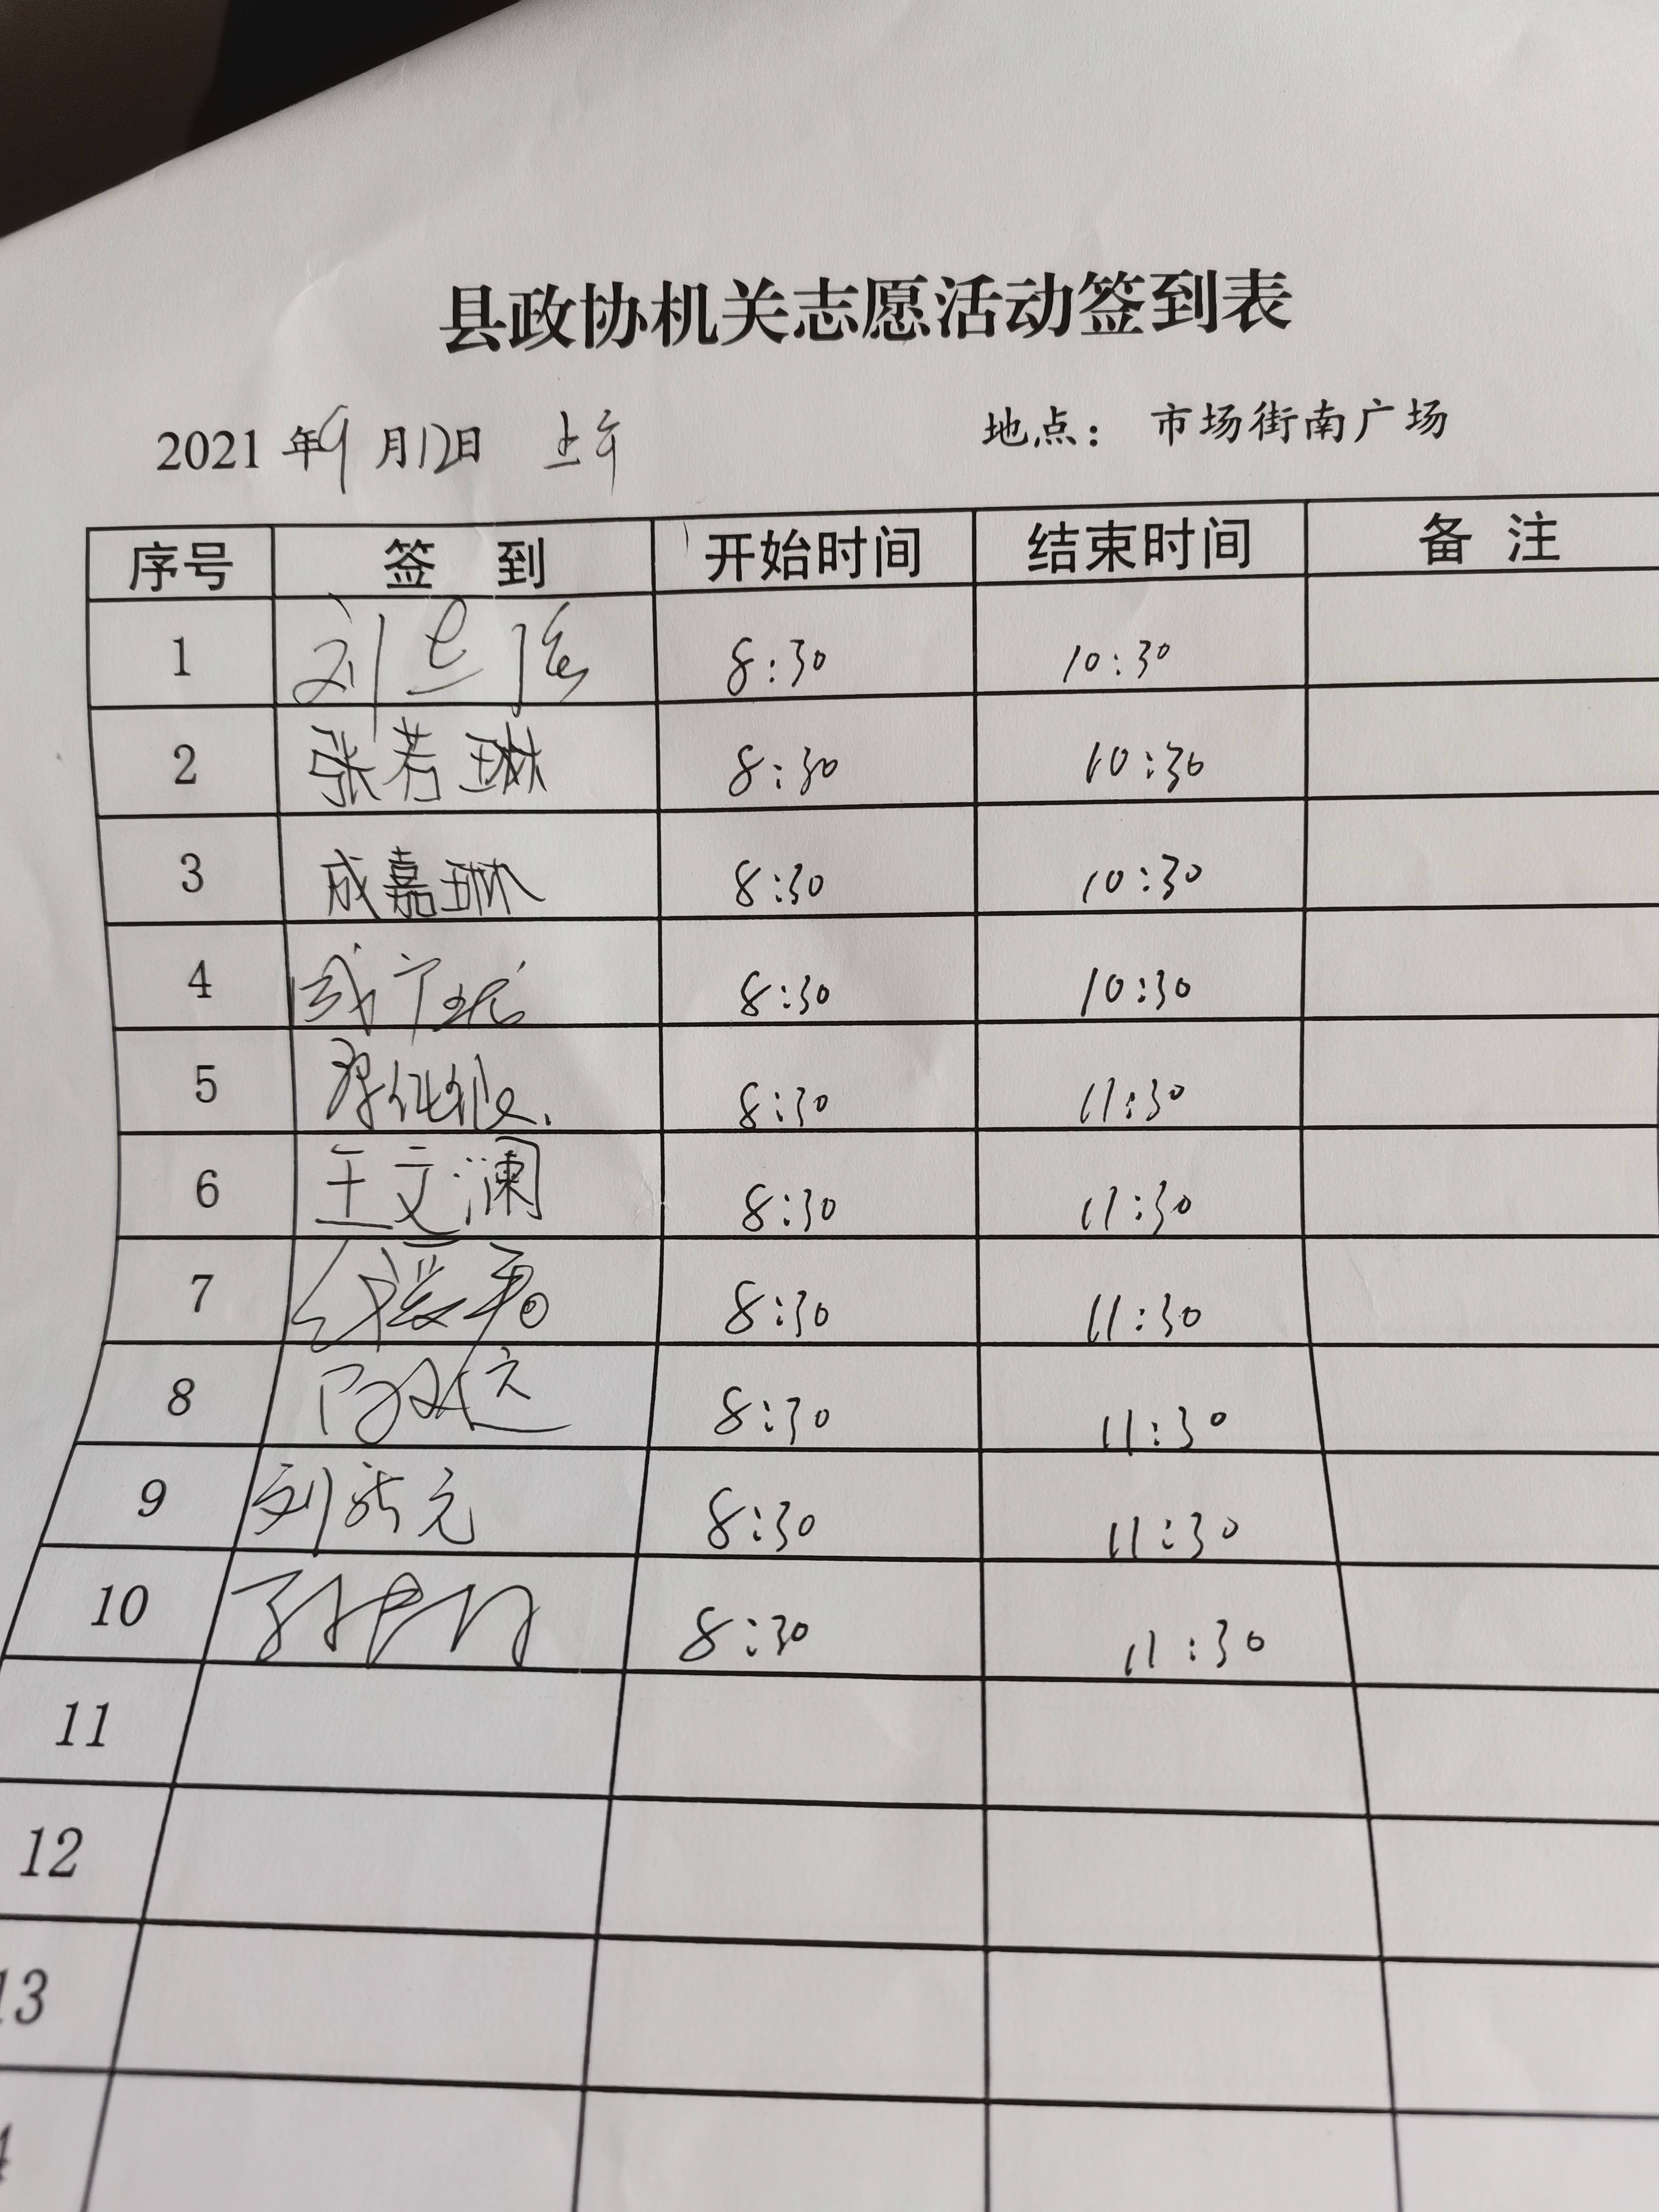 县政协机关志愿活动签到表
2021年9月12日 上午 地点： 市场街南广场
序号 签 到 开始时间 结束时间 备 注
1 刘 8:30 10:30
2 张若琳 8:30 10:30
3 成嘉琳 8:30 10:30
4 8:30 10:30
5 8:30 11:30
6 王文澜 8:30 11:30
7 8:30 11:30
8 8:30 11:30
9 刘 元 8:30 11:30
10 8:30 11:30
11
12
13